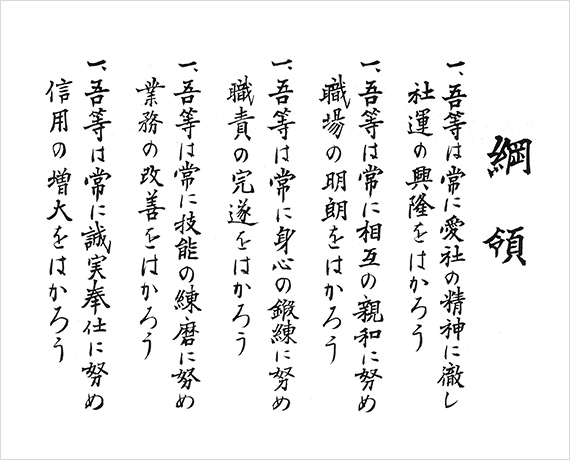 綱領
一、吾等は常に愛社の精神に徹し
社運の興隆をはかろう
一、吾等は常に相互の親和に努め
職場の明朗をはかろう
一、吾等は常に身心の鍛練に努め
職責の完遂をはかろう
一、吾等は常に技能の練磨に努め
業務の改善をはかろう
一、吾等は常に誠実奉仕に努め
信用の増大をはかろう